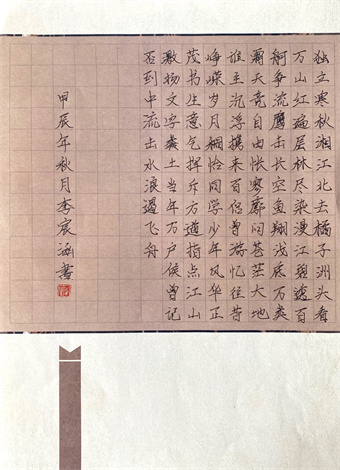 独立寒秋湘江北去橘子洲头看
万山红遍层林尽染漫江碧透百
舸争流鹰击长空鱼翔浅底万类
霜天竞自由怅寥廓问苍茫大地
谁主沉浮携来百侣曾游忆往昔
峥嵘岁月稠恰同学少年风华正
茂书生意气挥斥方遒指点江山
激扬文字粪土当年万户侯曾记
否到中流击水浪遏飞舟
甲辰年秋月李宸涵书